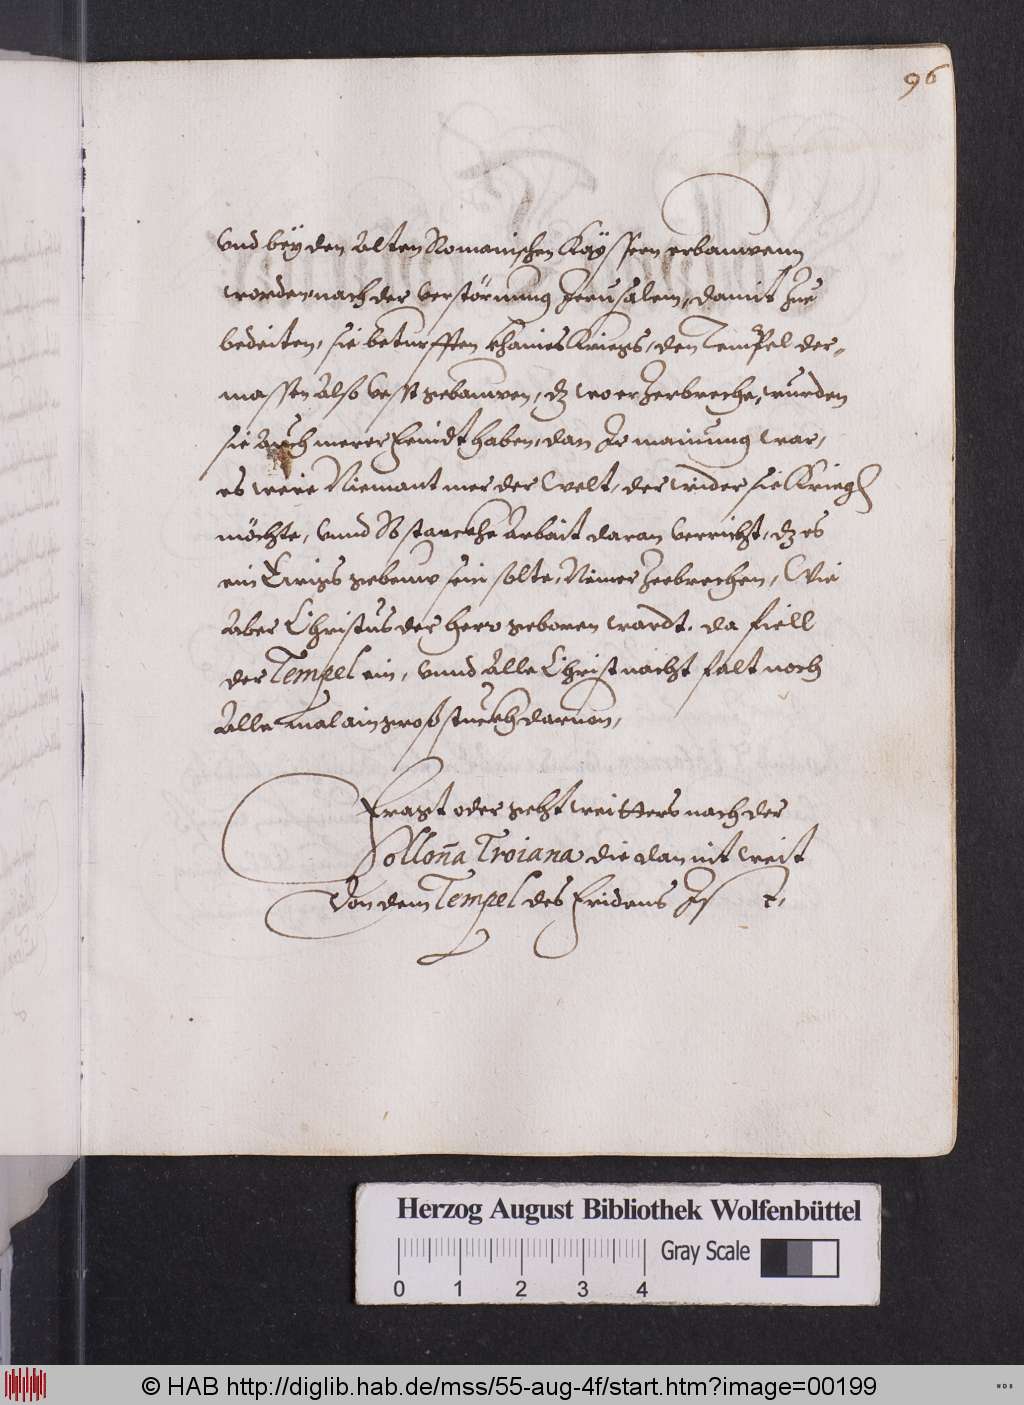 96
vnd bey den Alten Romanischen Kayssern erbauwenn
worden nach der verstörnung Jerusalem, damit zue
bedeiten, sie beturfften khaines Kriegs, den Tempel der-
massen Also vesst gebauwen, dz wo er Zerbreche, wurden
sie Auch merer Feindt haben, dan Ir mainung war,
es were Niemant mer der Welt, der wider sie Krieg
möchte, vnnd so starckhe Arbait daran verricht, dz es
ein Ewigs gebeuw sein solte, Nimer Zerbrechen, Wie
Aber Christus der herr geboren wardt, da fiell
der Tempel ein, vnnd Alle Christnacht falt noch
Alle mal ain groß stuckh daruon,
Fragt oder geht weitters nach der
Collona Troiana die dan nit weit
Von dem Tempel des Fridens Ist,
Herzog August Bibliothek Wolfenbüttel
0 1 2 3 4
Gray Scale
© HAB http://diglib.hab.de/mss/55-aug-4f/start.htm?image=00199